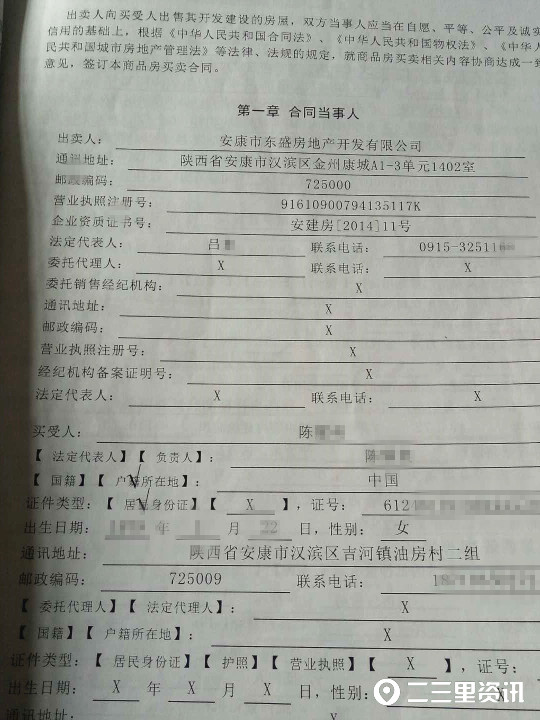 出卖人向买受人出售其开发建设的房屋，双方当事人应当在自愿、平等、公平及诚实
信用的基础上，根据《中华人民共和国合同法》、《中华人民共和国物权法》、《中华人
民共和国城市房地产管理法》等法律、法规的规定，就商品房买卖相关内容协商达成一致
意见，签订本商品房买卖合同。
第一章 合同当事人
出卖人： 安康市东盛房地产开发有限公司
通讯地址： 陕西省安康市汉滨区金州康城A1-3单元1402室
邮政编码： 725000
营业执照注册号： 91610900794135117K
企业资质证书号： 安建房[2014]11号
法定代表人： 吕 联系电话： 0915-32511
委托代理人： X 联系电话： X
委托销售经纪机构： X
通讯地址： X
邮政编码： X
营业执照注册号： X
经纪机构备案证明号： X
法定代表人： X 联系电话： X
买受人： 陈
【 法定代表人】【 负责人】： 陈
【 国籍】【 户籍所在地】： 中国
证件类型：【 居民身份证】【 X 】，证号： 612
出生日期： 年 月 22 日，性别： 女
通讯地址： 陕西省安康市汉滨区吉河镇油房村二组
邮政编码： 725009 联系电话： 18
【 委托代理人】【 法定代理人】： X
【 国籍】【 户籍所在地】： X
证件类型：【 居民身份证】【 护照】【 营业执照】【 X 】，证号：
出生日期： X 年 X 月 X 日，性别： X
通讯地址： X
二三里资讯